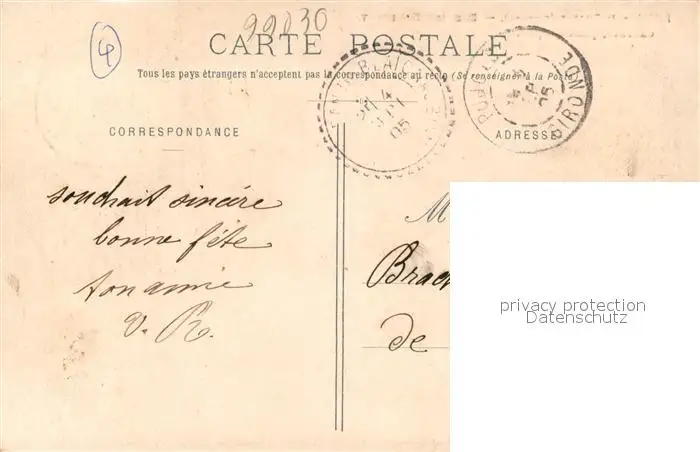 99030
4
CARTE POSTALE
Tous les pays étrangers n'acceptent pas la correspondance au recto (Se renseigner à la Poste)
CORRESPONDANCE
ADRESSE
GIRONDE
05
05
souhait sincére
bonne fête
ton amie
V. R.
M
de
privacy protection
Datenschutz